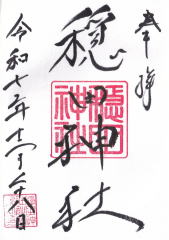 奉拝
穏田神社
穏田神社
令和七年十一月二十八日